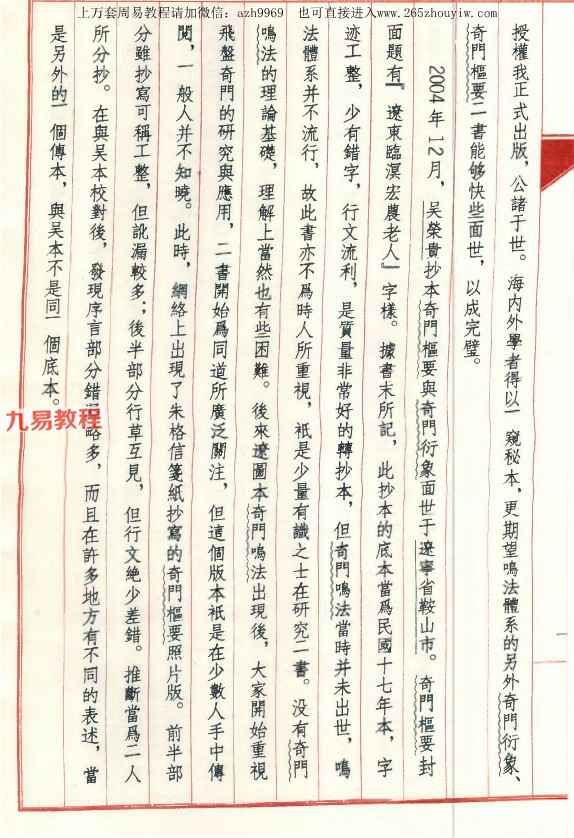 上万套周易教程请加微信：azh9969 也可直接进入www.265zhouyiw.com
授權我正式出版，公諸于世。海内外學者得以一窺秘本，更期望鳴法體系的另外奇門衍象、
奇門樞要二書能够快些面世，以成完璧。
2004年12月，吴榮貴抄本奇門樞要與奇門衍象面世于遼寧省鞍山市。奇門樞要封
面題有『遼東臨溟宏農老人』字樣。據書末所記，此抄本的底本當爲民國十七年本，字
迹工整，少有錯字，行文流利，是質量非常好的轉抄本，但奇門鳴法當時并未出世，鳴
法體系并不流行，故此書亦不爲時人所重視，衹是少量有識之士在研究二書。没有奇門
鳴法的理論基礎，理解上當然也有些困難。後來遼圖本奇門鳴法出現後，大家開始重視
飛盤奇門的研究與應用，二書開始爲同道所廣泛關注，但這個版本衹是在少數人手中傳
閲，一般人并不知曉。此時，網絡上出現了朱格信箋紙抄寫的奇門樞要照片版。前半部
分雖抄寫可稱工整，但訛漏較多；後半部分行草互見，但行文絶少差錯。推斷當爲二人
所分抄。在與吴本校對後，發現序言部分錯略多，而且在許多地方有不同的表述，當
是另外的一個傳本，與吴本不是同一個底本。
九易教程